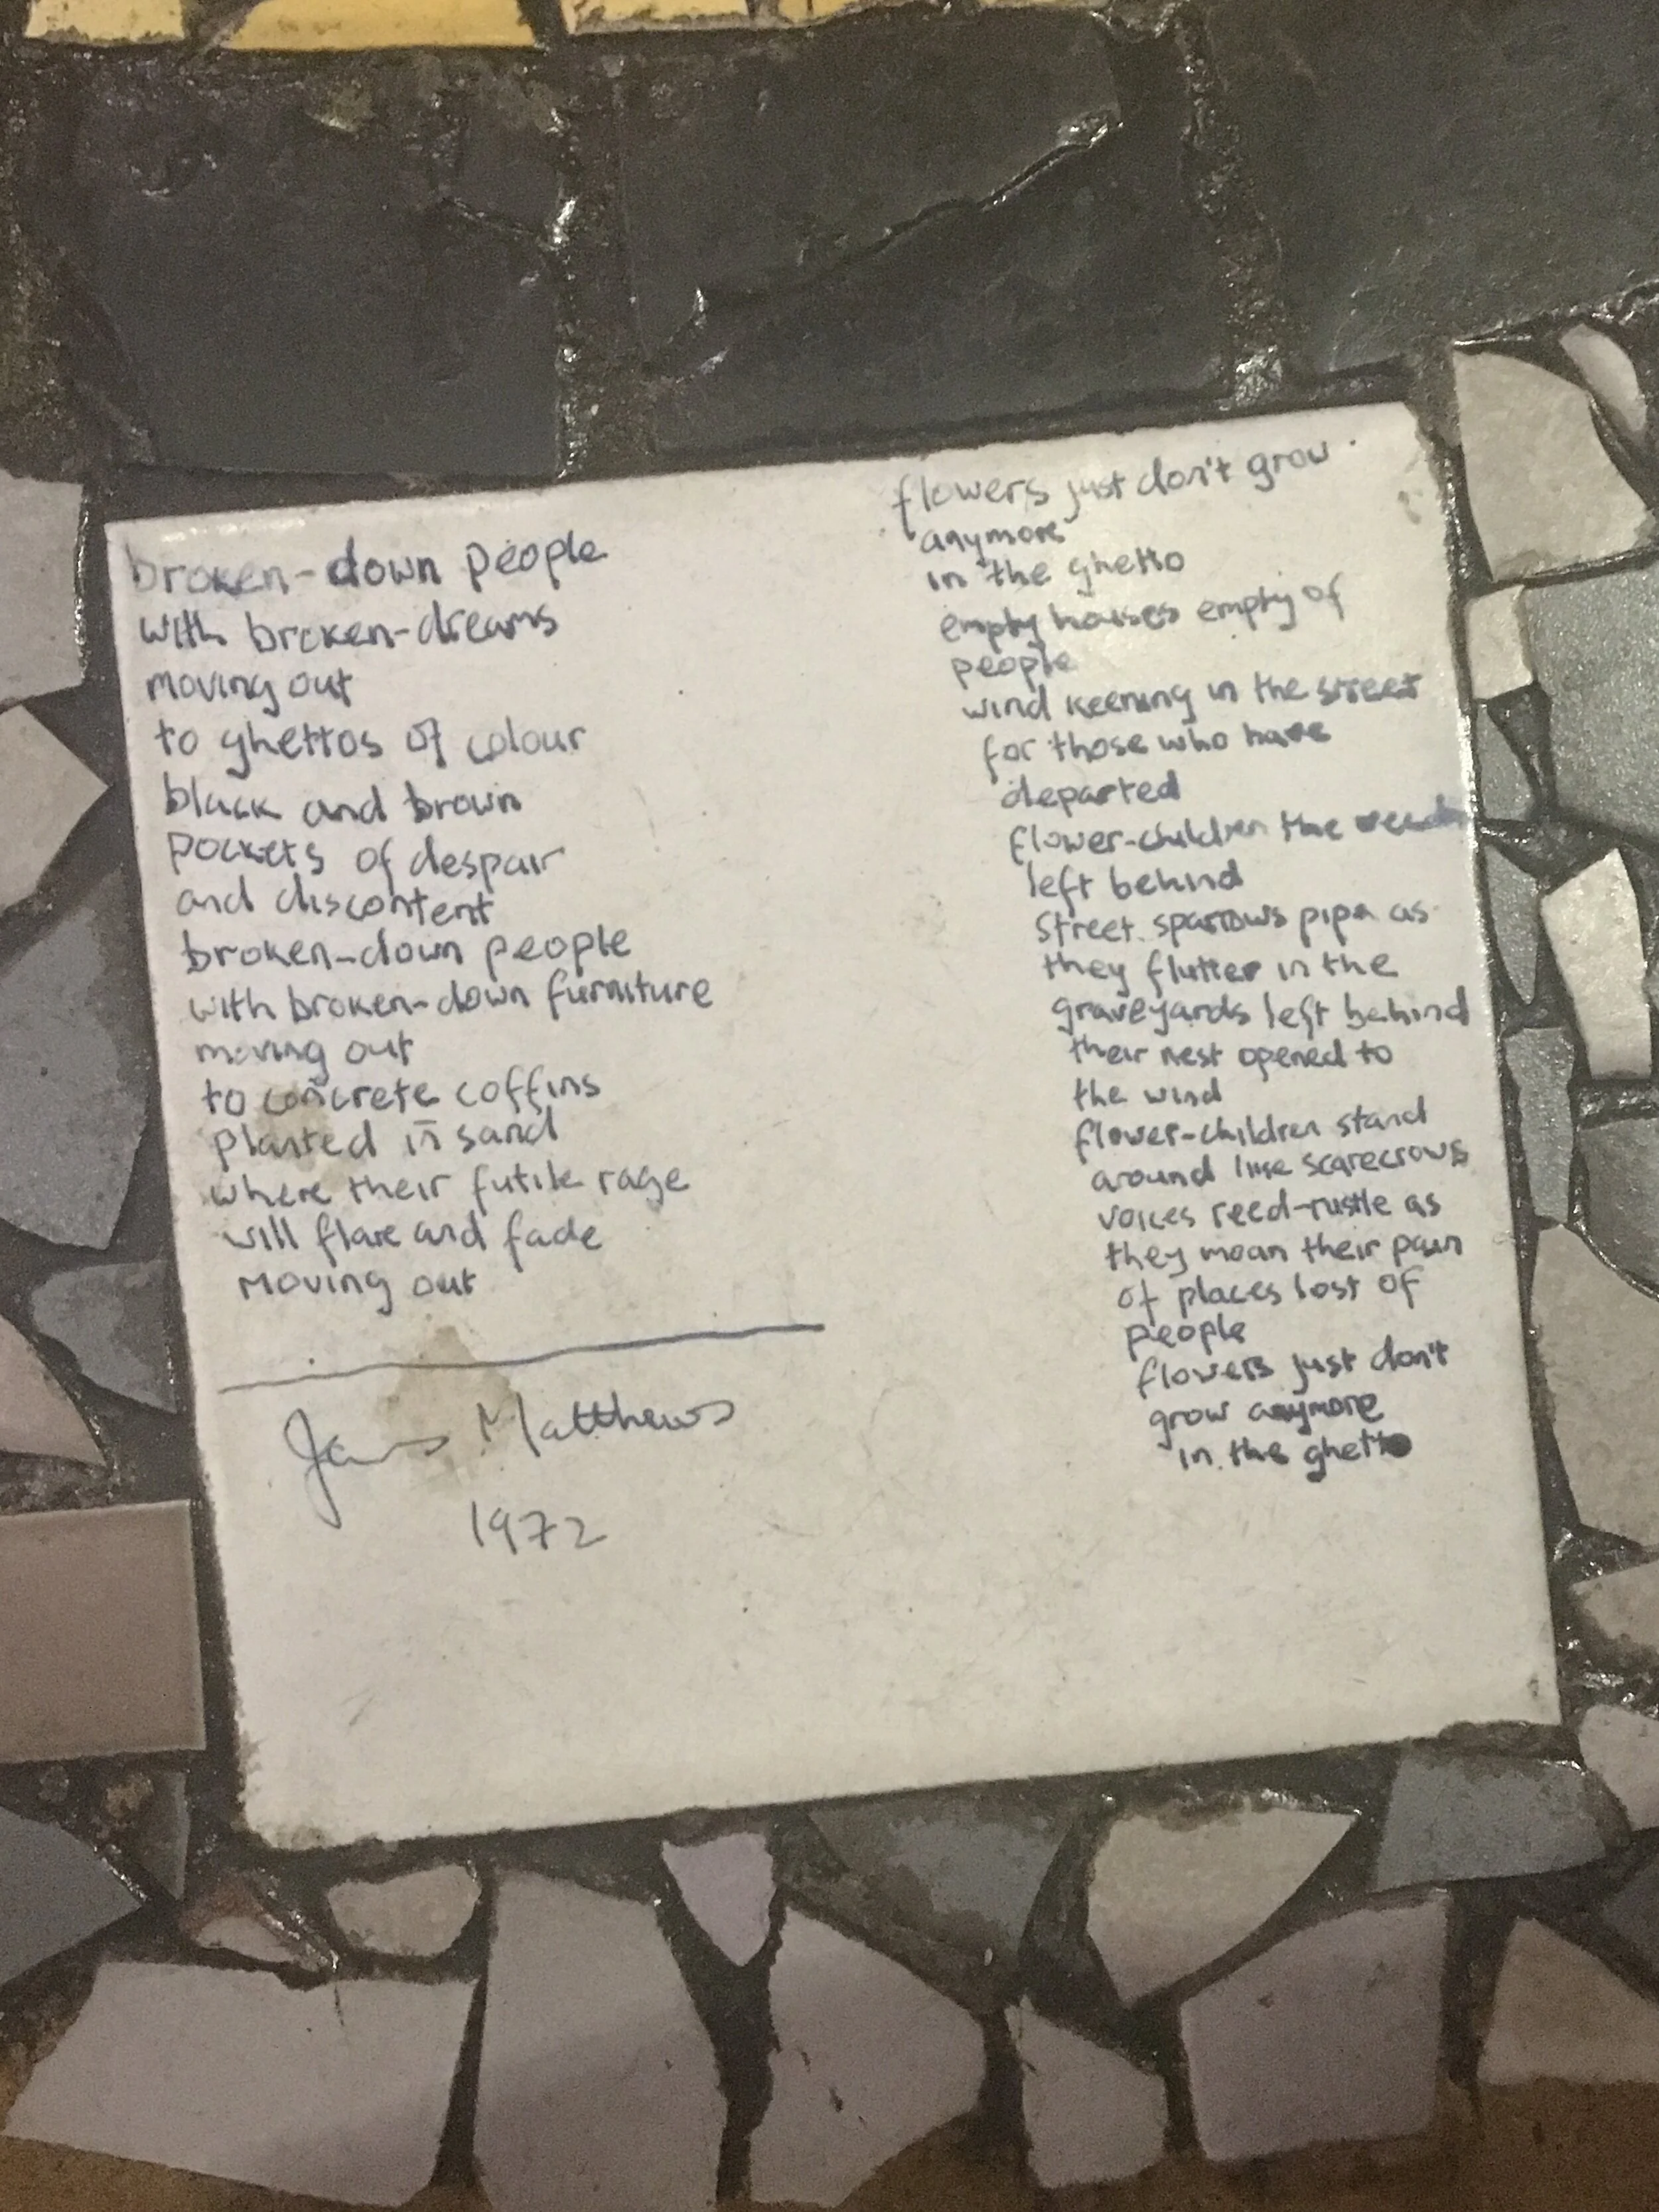 broken-down people
with broken-dreams
moving out
to ghettos of colour
black and brown
pockets of despair
and discontent
broken-down people
with broken-down furniture
moving out
to concrete coffins
planted in sand
where their futile rage
will flare and fade
moving out
James Matthews
1972
flowers just don't grow
anymore
in the ghetto
empty houses empty of
people
wind keening in the street
for those who have
departed
flower-children the
left behind
street sparrows pipe as
they flutter in the
graveyards left behind
their nest opened to
the wind
flower-children stand
around like scarecrows
voices reed-rustle as
they moan their pain
of places lost of
people
flowers just don't
grow anymore
in the ghetto